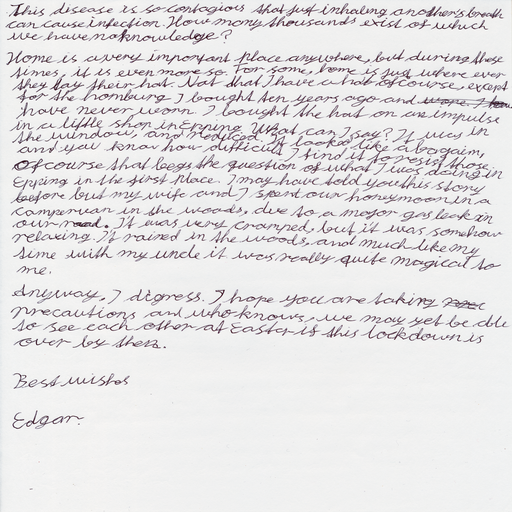 This disease is so contagious that just inhaling another's breath
can cause infection. How many thousands exist of which
we have no knowledge?
Home is a very important place anywhere, but during these
times, it is even more so. For some, home is just where ever
they lay their hat. Not that I have a hat of course, except
for the homburg I bought ten years ago and
have never worn. I bought the hat on an impulse
in a little shop in Epping. What can I say? It was in
the window, and reduced. It looked like a bargain,
and you know how difficult I find it to resist those.
Of course that begs the question of what I was doing in
Epping in the first place. I may have told you this story
before but my wife and I spent our honeymoon in a
campervan in the woods, due to a major gas leak in
our road. It was very cramped, but it was somehow
relaxing. It rained in the woods, and much like my
time with my uncle it was really quite magical to
me.
Anyway, I digress. I hope you are taking
precautions and who knows, we may yet be able
to see each other at Easter if this lockdown is
over by then.
Best wishes
Edgar.